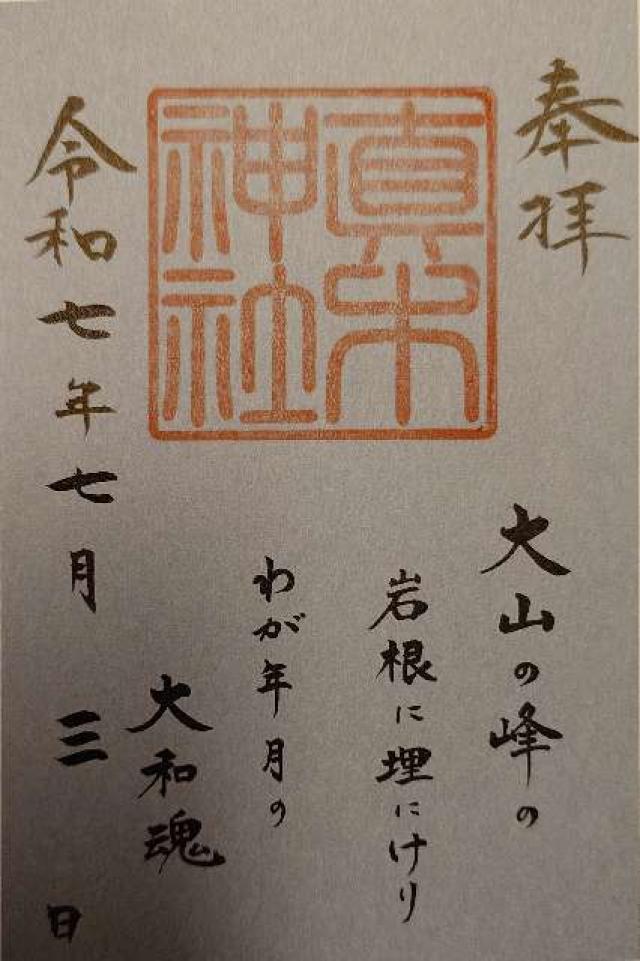 奉拝
真木神社
大山の峰の
岩根に埋にけり
わが年月の
大和魂
令和七年七月三日